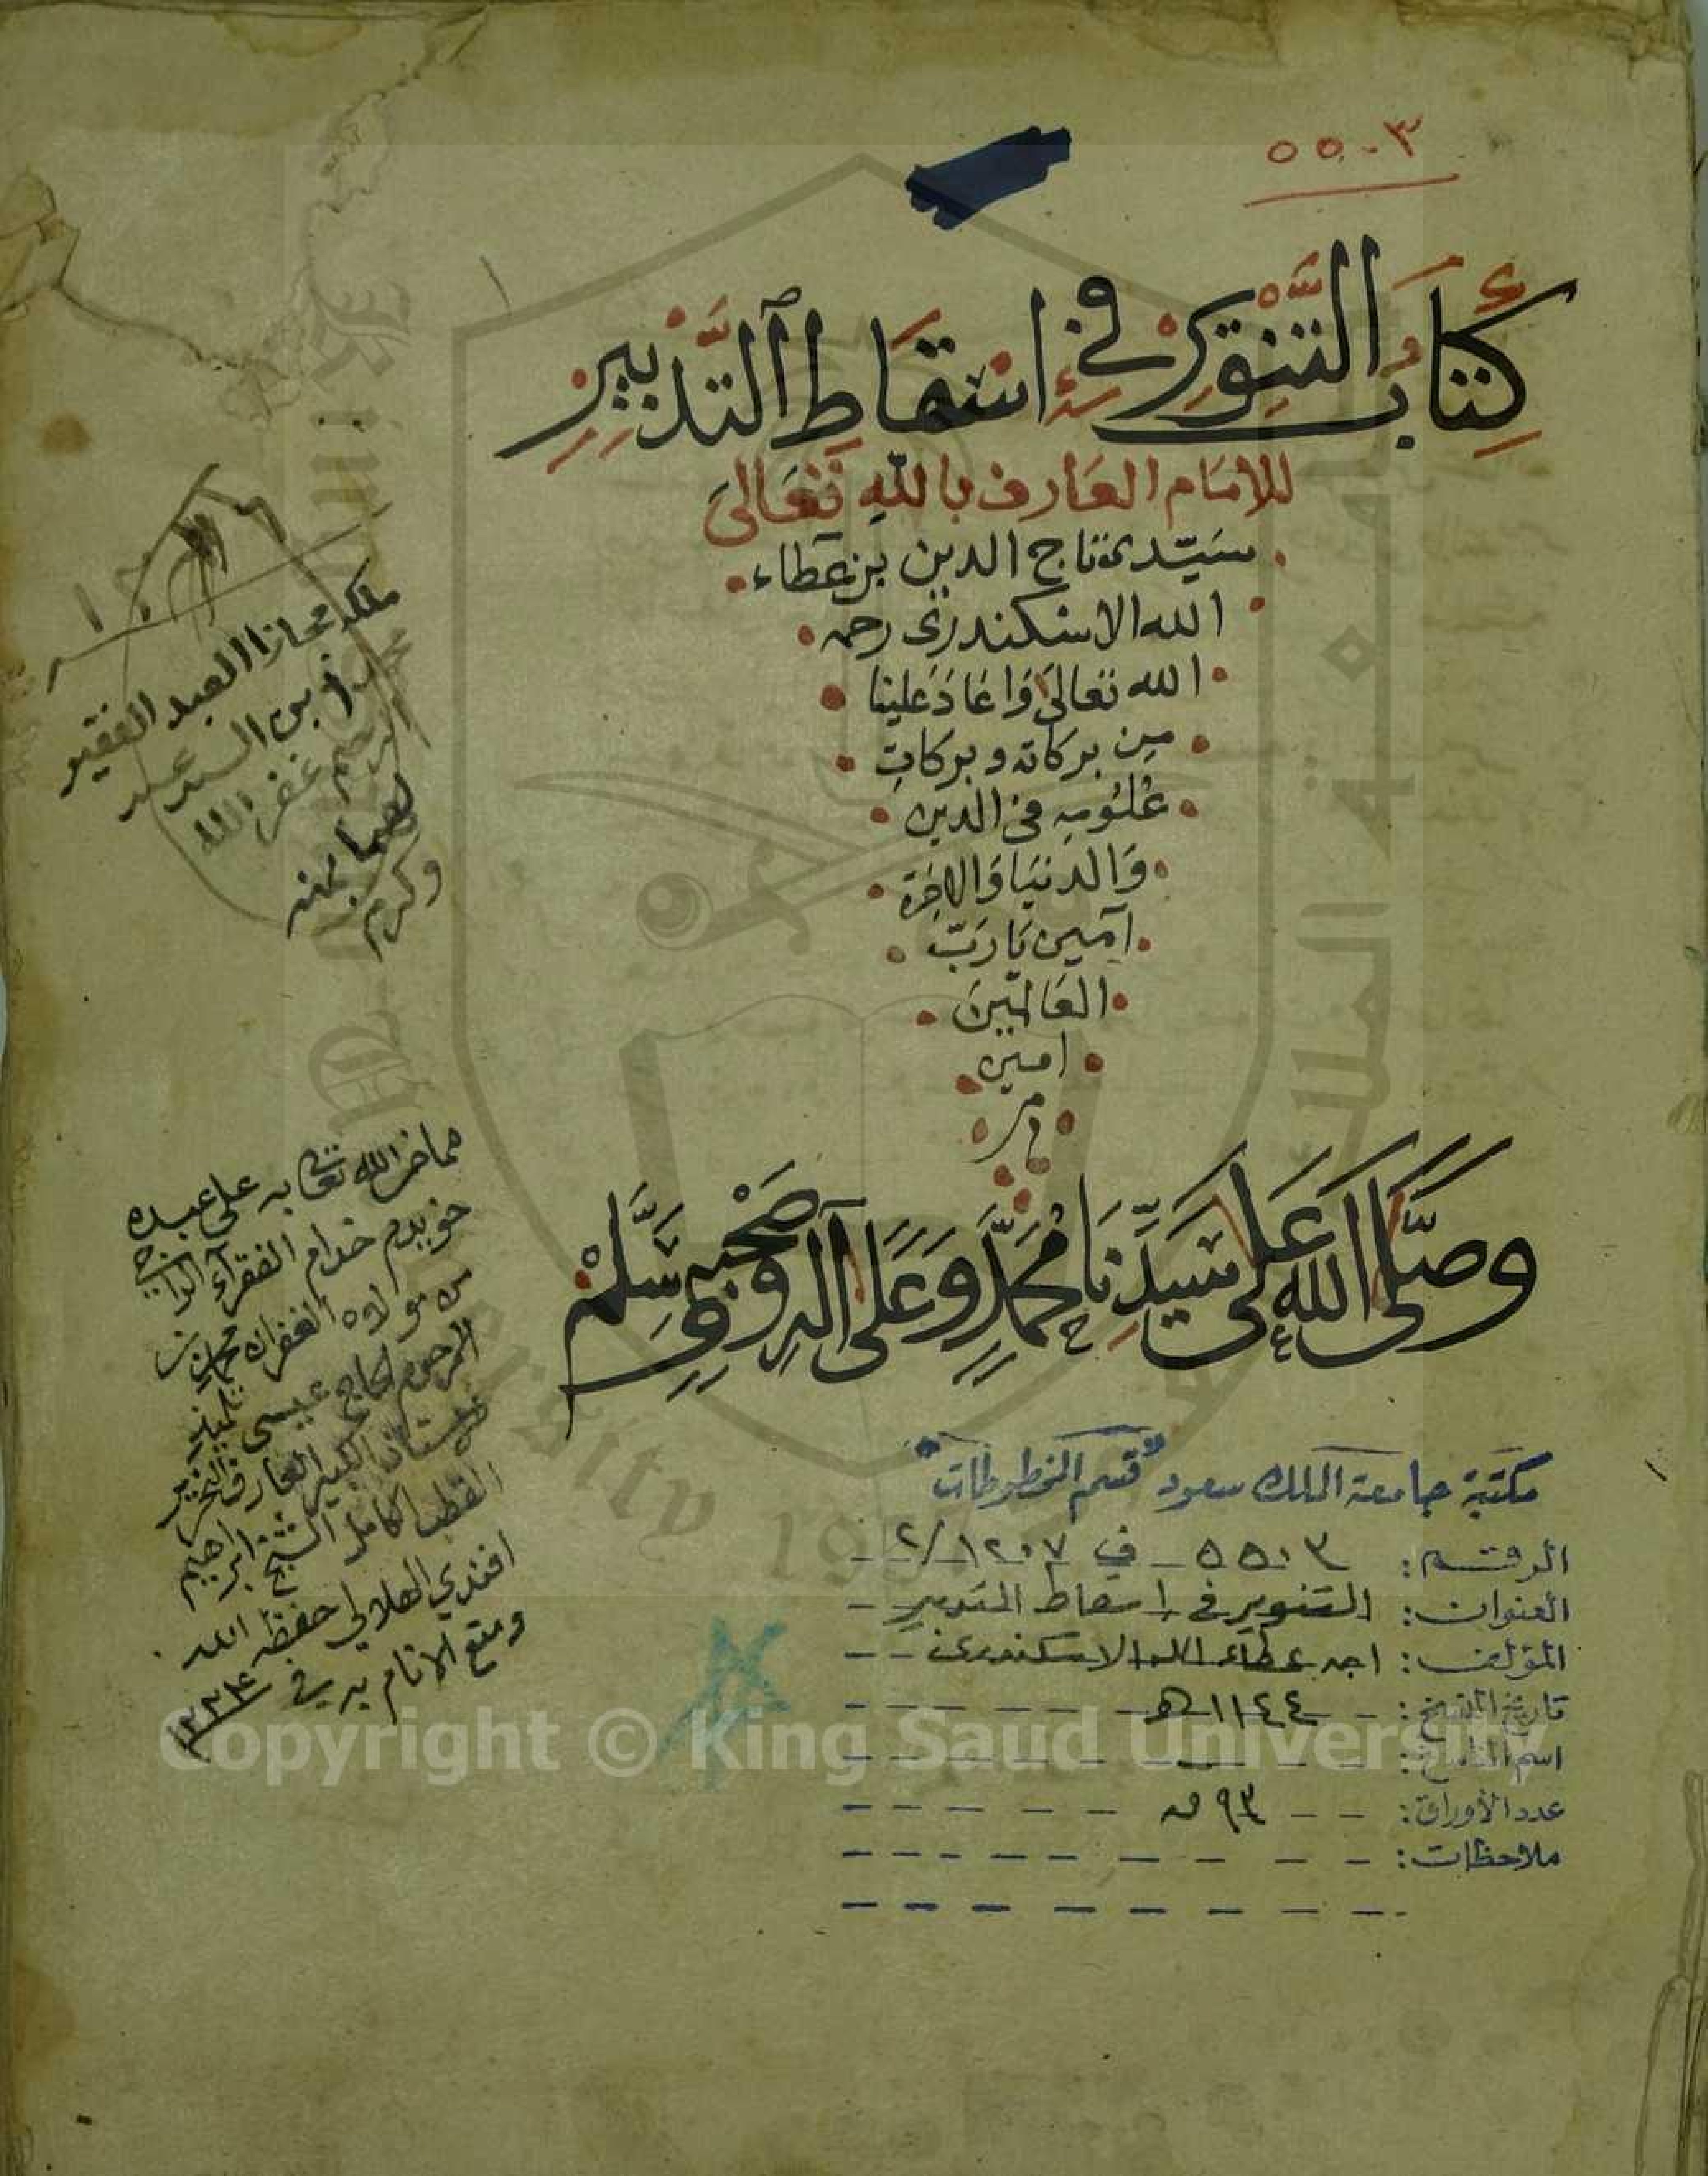 ٥٥٠٣
كِتَابُ التَّنْوِيرِ فِي إسْقَاطِ التَّدْبِيرِ
للامَام العَارف بالله تَعَالىَ
سَيّدى تاج الدين بن عَطاء
الله الاسكندرى رحمه
الله تعالىَ وَاعَادَ علينا
مِن بركاته وبركاتِ
عُلُومِه فى الدين
وَالدنيَا وَالاخِرَة
آمين يَا رَبّ
العَالمينَ
امين
م
وَصَلَّى اللهُ عَلَى سَيِّدِنَا مُحَمَّدٍ وَعَلَى آلِهِ وَصَحْبِهِ وَسَلَّمْ
ملكه مجازا العبد الفقير
السيد عبد
غفر الله
لهما بمنه
وكرم
مما من الله تعالى به على عبده
خويدم خدام الفقراء الراجي
من مولاه الغفران محمد بن
المرحوم الحاج عيسى تلميذ
الكبير العارف النحرير
القطب الكامل الشيخ ابراهيم
افندي الهلالي حفظه الله
ومتع الانام به في ١٢٢٤
مكتبة جامعة الملك سعود "قسم المخطوطات"
الرقم: ٥٥٠٣ ف ١٢٠٧/٢
العنوان: التنوير في اسقاط التدبير
المؤلف: ابن عطاء الله الاسكندرى
تاريخ النسخ: ١١٤٤ هـ
اسم الناسخ:
عدد الأوراق: ٩٣ ق
ملاحظات:
Copyright © King Saud University